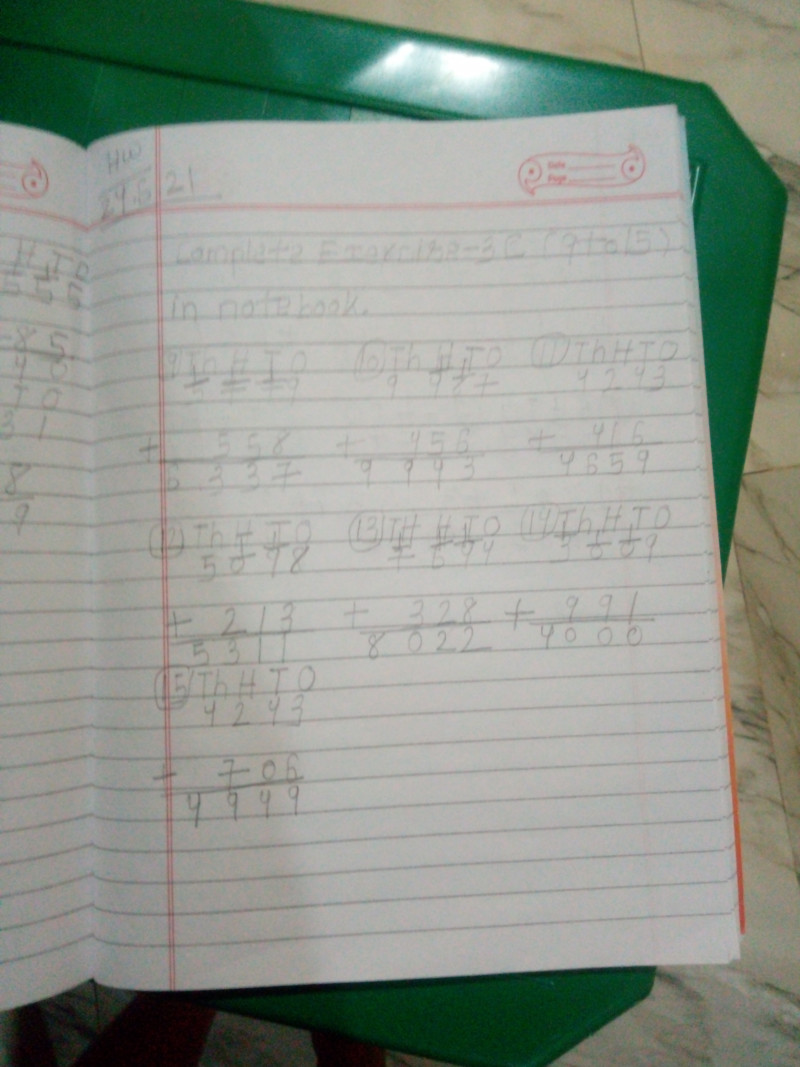 HW
24.6.21
Date
Page
Complete Exercise-3C (9 to 15)
in notebook.
9 Th H T O 10 Th H T O 11 Th H T O
5 7 7 9 9 4 8 7 4 2 4 3
+ 5 5 8 + 4 5 6 + 4 1 6
6 3 3 7 9 9 4 3 4 6 5 9
12 Th H T O 13 TH H T O 14 Th H T O
5 0 9 8 7 6 9 4 3 0 0 9
+ 2 1 3 + 3 2 8 + 9 9 1
5 3 1 1 8 0 2 2 4 0 0 0
15 Th H T O
4 2 4 3
+ 7 0 6
4 9 4 9